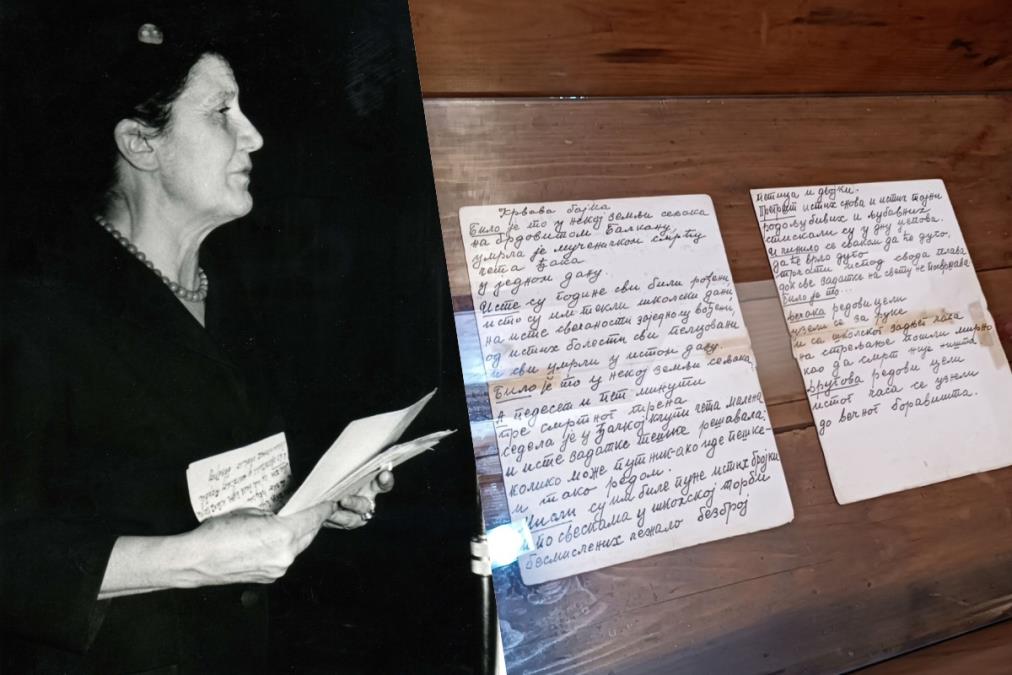 Крвава бајка
Било је то у некој земљи сељака
на брдовитом Балкану,
умрла је мученичком смрћу
чета ђака
у једном дану.
Исте су године сви били рођени,
исто су им текли школски дани,
на исте свечаности заједно су вођени,
од истих болести сви пелцовани
и сви умрли у истом дану.
Било је то у некој земљи сељака,
А педесет и пет минути
пре смртног трена
седела је у ђачкој клупи чета малена
и исте задатке тешке решавала:
колико може путник ако иде пешке-
и тако редом.
Мисли су им биле пуне истих бројки
и по свескама у школској торби
бесмислених лежало безброј
петица и двојки.
Прегршт истих снова и истих тајни
родољубивих и љубавних
стискали су у дну џепова.
И чинило се сваком да ће дуго,
да ће врло дуго
трчати испод свода плава
док све задатке на свету не посвршава
Било је то...
Дечака редови цели
узели се за руке
и са школског задњег часа
на стрељање пошли мирно
као да смрт није ништа.
Другова редови цели
истог часа се узнели
до вечног боравишта.